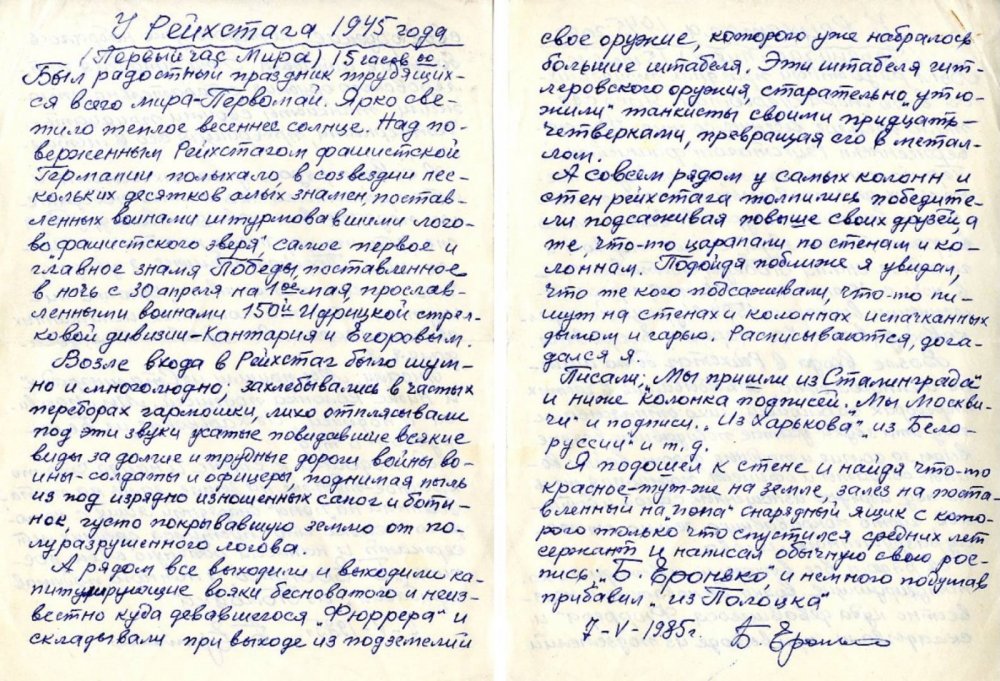 У Рейхстага 1945 года
(Первый час Мира) 15 часов 00
Был радостный праздник трудящих-
ся всего мира-Первомай. Ярко све-
тило теплое весеннее солнце. Над по-
верженным Рейхстагом фашистской
Германии полыхало, в созвездии нес-
кольких десятков алых знамен, постав-
ленных воинами штурмовавшими лого-
во фашистского зверя", самое первое и
главное знамя Победы, поставленное
в ночь с 30 апреля на 1ое мая, прослав-
ленными воинами 150й Идрицкой стрел-
ковой дивизии-Кантария и Егоровым.
Возле входа в Рейхстаг было шум-
но и многолюдно; захлебывались в частых
переборах гармошки, лихо отплясывали
под эти звуки усатые повидавшие всякие
виды за долгие и трудные дороги войны во-
ины-солдаты и офицеры, поднимая пыль
из под изрядно изношенных сапог и боти-
нок, густо покрывавшую землю от по-
луразрушенного логова.
А рядом все выходили и выходили ка-
питулирующие вояки бесноватого и неиз-
вестно куда девавшегося „Фюррера" и
складывали при выходе из подземелий
свое оружие, которого уже набралось
большие штабеля. Эти штабеля гит-
леровского оружия, старательно „утю-
жили" танкисты своими тридцать-
четверками, превращая его в метал-
лом.
А совсем рядом у самых колонн и
стен рейхстага толпились победите-
ли подсаживая повыше своих друзей, а
те, что-то царапали, по стенам и ко-
лоннам. Подойдя поближе я увидал,
что те кого подсаживали, что-то пи-
шут на стенах и колоннах испачканных
дымом и гарью. Расписываются, дога-
дался я.
Писали; „Мы пришли из Сталинграда"
и ниже колонка подписей. „Мы Москви-
чи" и подписи. „Из Харькова" „из Бело-
руссии" и т.д.
Я подошел к стене и найдя что-то
красное-тут-же на земле, залез на поста-
вленный на „попа" снарядный ящик с кото-
рого только что спустился средних лет
сержант и написал обычную свою рос-
пись „Б. Еронько" и немного подумав
прибавил „из Полоцка"
7-V-1985г. Б. Еронько